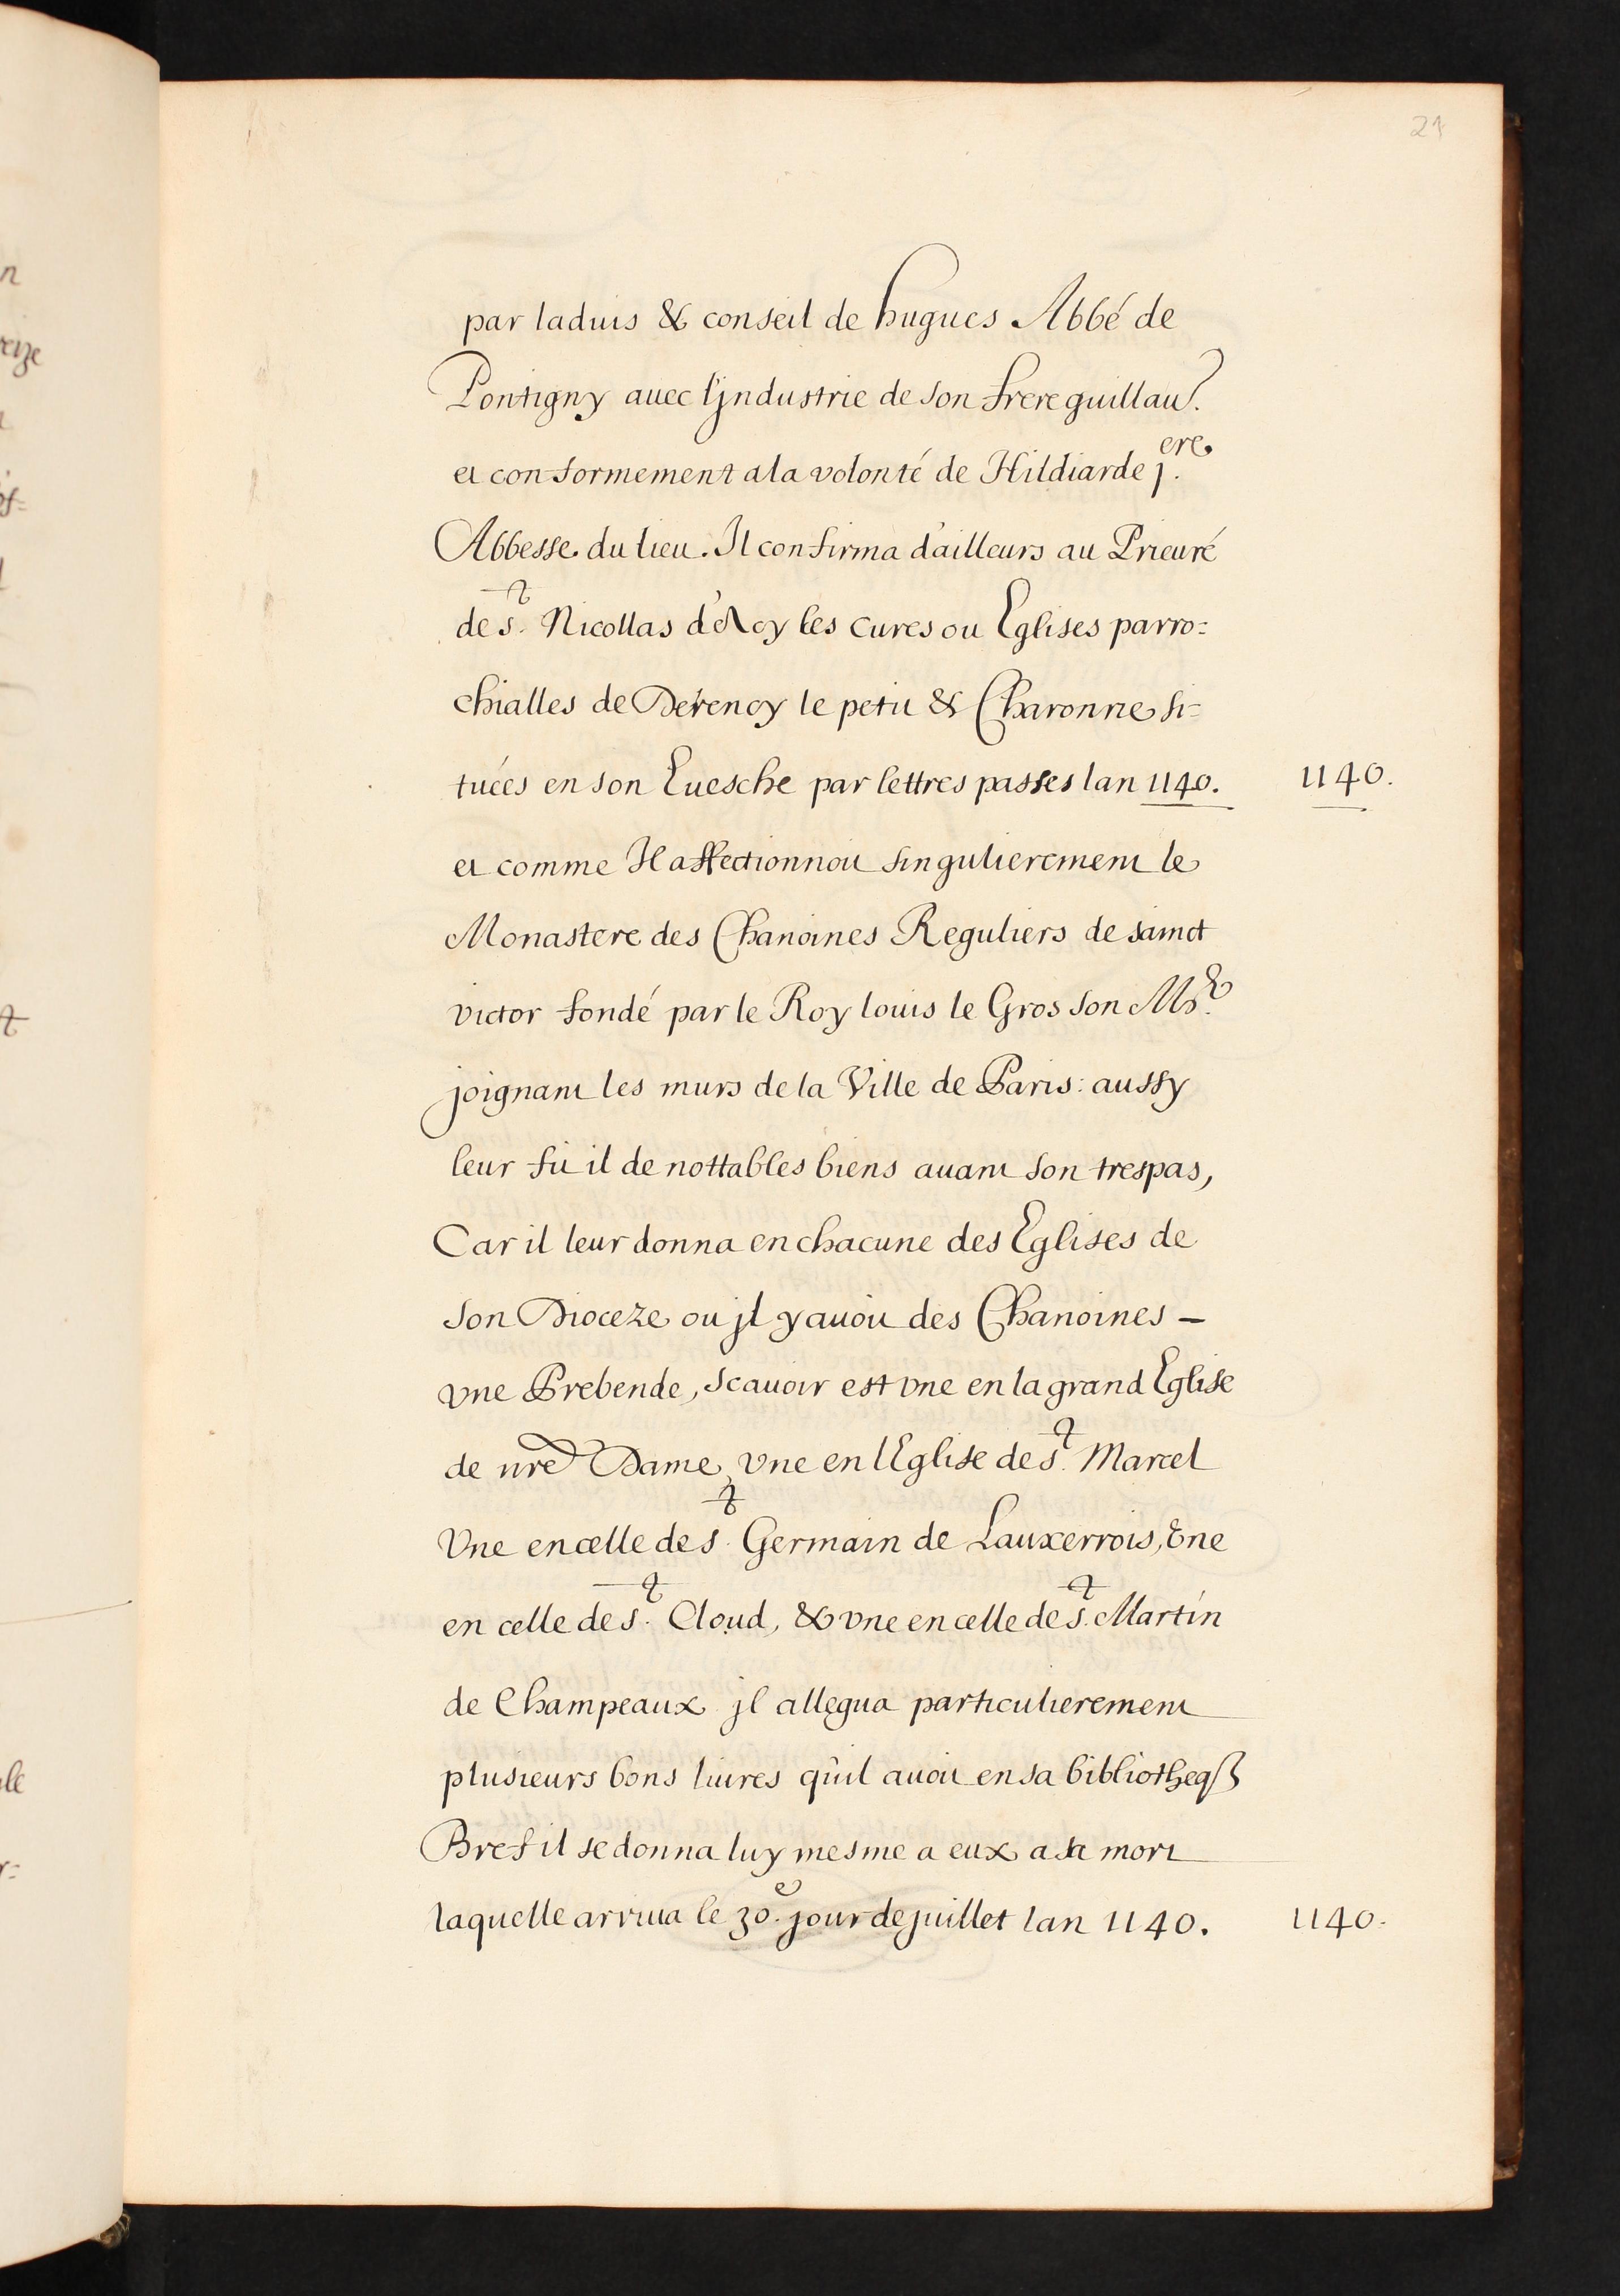 21
par laduis & conseil de hugues Abbé de
Pontigny auec l'jndustrie de son frere guillau^e.
et conformement a la volonté de Hildiarde j.^ere
Abbesse du lieu. Il confirma d'ailleurs au Prieuré
de s.^t Nicollas d'Acy les cures ou Eglises parro=
chialles de Derency le petit & Charonne si=
tuées en son Euesche par lettres passes lan 1140.
1140.
et comme Il affectionnoit singulierement le
Monastere des Chanoines Reguliers de sainct
victor fondé par le Roy louis le Gros son M.^e
joignant les murs de la Ville de Paris: aussy
leur fit il de nottables biens auant son trespas,
Car il leur donna en chacune des Eglises de
son Dioceze ou jl y auoit des Chanoines -
vne Prebende, scauoir est vne en la grand Eglise
de nre Dame, vne en l'Eglise de s.^t Marcel
Vne en celle de s.^t Germain de Lauxerrois, Vne
en celle de s.^t Cloud, & vne en celle de s.^t Martin
de Champeaux jl allegua particulierement
plusieurs bons liures qu'il auoit en sa bibliotheqß
Bref il se donna luy mesme a eux a sa mort
laquelle arriua le 30.^e jour de juillet lan 1140.
1140.